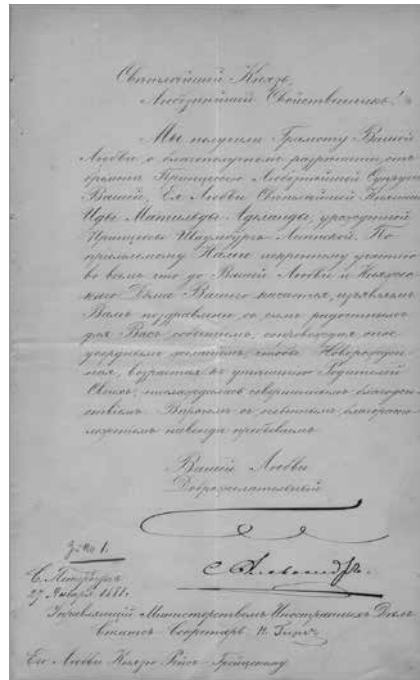 Свѣтлѣйшій Князь,
Любезнѣйшій Свойственникъ!
Мы получили Грамоту Вашей
Любви, о благополучномъ разрѣшеніи отъ
бремени Принцессою Любезнѣйшей Супруги
Вашей, Ея Любви Свѣтлѣйшей Княгини
Иды Матильды Аделаиды, урожденной
Принцессы Шаумбургъ Липпской. По
пріемлемому Нами искреннему участію
во всемъ что до Вашей Любви и Княжес-
каго Дома Вашего касается, изъявляемъ
Вамъ поздравленіе со симъ радостнымъ
для Васъ событіемъ, сопровождая оное
усерднымъ желаніемъ, чтобы Новорожден-
ная, возрастая въ утѣшеніе Родителей
Своихъ, наслаждалась совершеннымъ благоден-
ствіемъ. Впрочемъ съ отмѣннымъ благорас-
положеніемъ навсегда пребываемъ
Вашей Любви
Доброжелательный
Александръ
С. Петербургъ
27 Января 1881.
Управляющій Министерствомъ Иностранныхъ Дѣлъ
Статсъ Секретарь Н. Гирсъ
Его Любви Князю Рейсъ-Грейцскому